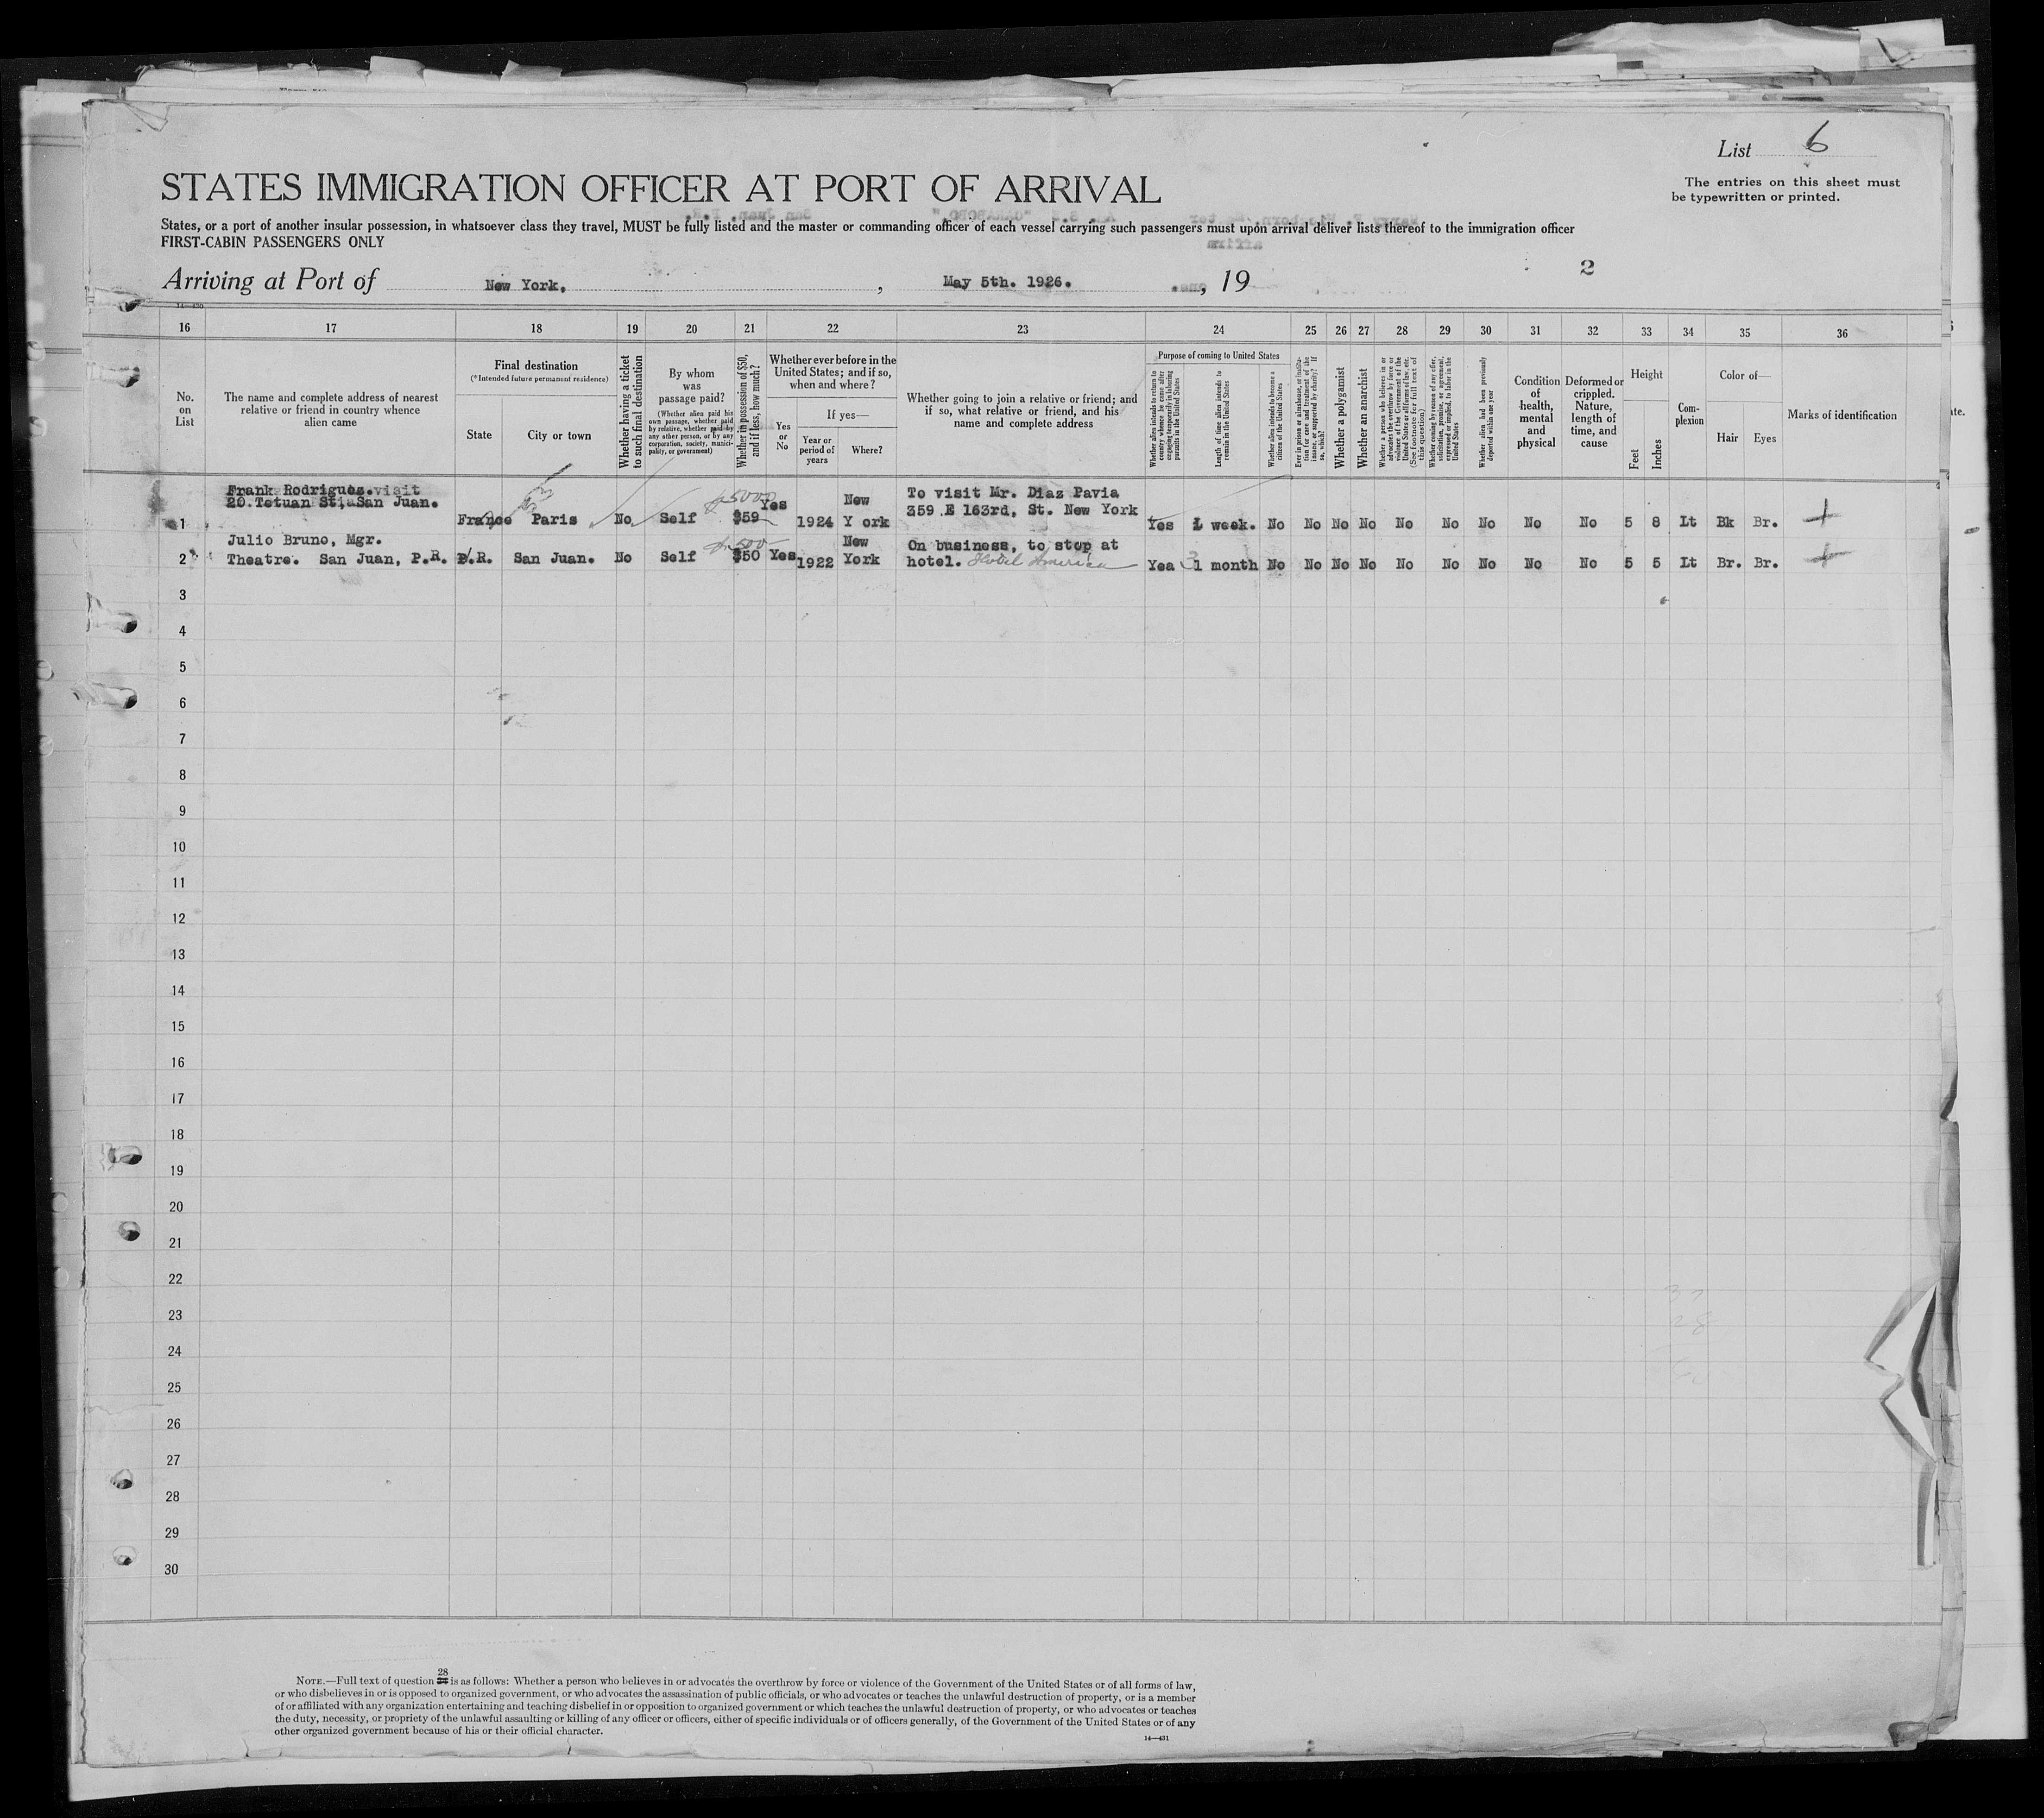 List 6
The entries on this sheet must
be typewritten or printed.
STATES IMMIGRATION OFFICER AT PORT OF ARRIVAL
States, or a port of another insular possession, in whatsoever class they travel, MUST be fully listed and the master or commanding officer of each vessel carrying such passengers must upon arrival deliver lists thereof to the immigration officer
FIRST-CABIN PASSENGERS ONLY
Arriving at Port of New York, , May 5th. 1926. , 19
2
14—430
16 17 18 19 20 21 22 23 24 25 26 27 28 29 30 31 32 33 34 35 36
No. on List
The name and complete address of nearest relative or friend in country whence alien came
Final destination
(*Intended future permanent residence)
State
City or town
Whether having a ticket to such final destination
By whom was passage paid?
(Whether alien paid his own passage, whether paid by relative, whether paid by any other person, or by any corporation, society, municipality, or government)
Whether in possession of $50, and if less, how much?
Whether ever before in the United States; and if so, when and where?
Yes or No
If yes—
Year or period of years
Where?
Whether going to join a relative or friend; and if so, what relative or friend, and his name and complete address
Purpose of coming to United States
Whether alien intends to return to country whence he came after engaging temporarily in laboring pursuits in the United States
Length of time alien intends to remain in the United States
Whether alien intends to become a citizen of the United States
Ever in prison or almshouse, or institution for care and treatment of the insane, or supported by charity? If so, which?
Whether a polygamist
Whether an anarchist
Whether a person who believes in or advocates the overthrow by force or violence of the Government of the United States or all forms of law, etc. (See footnote for full text of this question)
Whether coming by reason of any offer, solicitation, promise, or agreement, expressed or implied, to labor in the United States
Whether alien had been previously deported within one year
Condition of health, mental and physical
Deformed or crippled. Nature, length of time, and cause
Height
Feet
Inches
Complexion
Color of—
Hair
Eyes
Marks of identification
Frank Rodriguez. visit
20 Tetuan St, San Juan.
1 France Paris No Self $5000 $50 Yes 1924 New Y ork To visit Mr. Diaz Pavia
359 E 163rd, St. New York Yes 1 week. No No No No No No No No No 5 8 Lt Bk Br.
Julio Bruno, Mgr.
2 Theatre. San Juan, P.R. P.R. San Juan. No Self $500 $50 Yes 1922 New York On business, to stop at
hotel. Hotel America Yea 3 1 month No No No No No No No No No 5 5 Lt Br. Br.
3
4
5
6
7
8
9
10
11
12
13
14
15
16
17
18
19
20
21
22
23
24
25
26
27
28
29
30
28
NOTE.—Full text of question is as follows: Whether a person who believes in or advocates the overthrow by force or violence of the Government of the United States or of all forms of law,
or who disbelieves in or is opposed to organized government, or who advocates the assassination of public officials, or who advocates or teaches the unlawful destruction of property, or is a member
of or affiliated with any organization entertaining and teaching disbelief in or opposition to organized government or which teaches the unlawful destruction of property, or who advocates or teaches
the duty, necessity, or propriety of the unlawful assaulting or killing of any officer or officers, either of specific individuals or of officers generally, of the Government of the United States or of any
other organized government because of his or their official character.
14—431